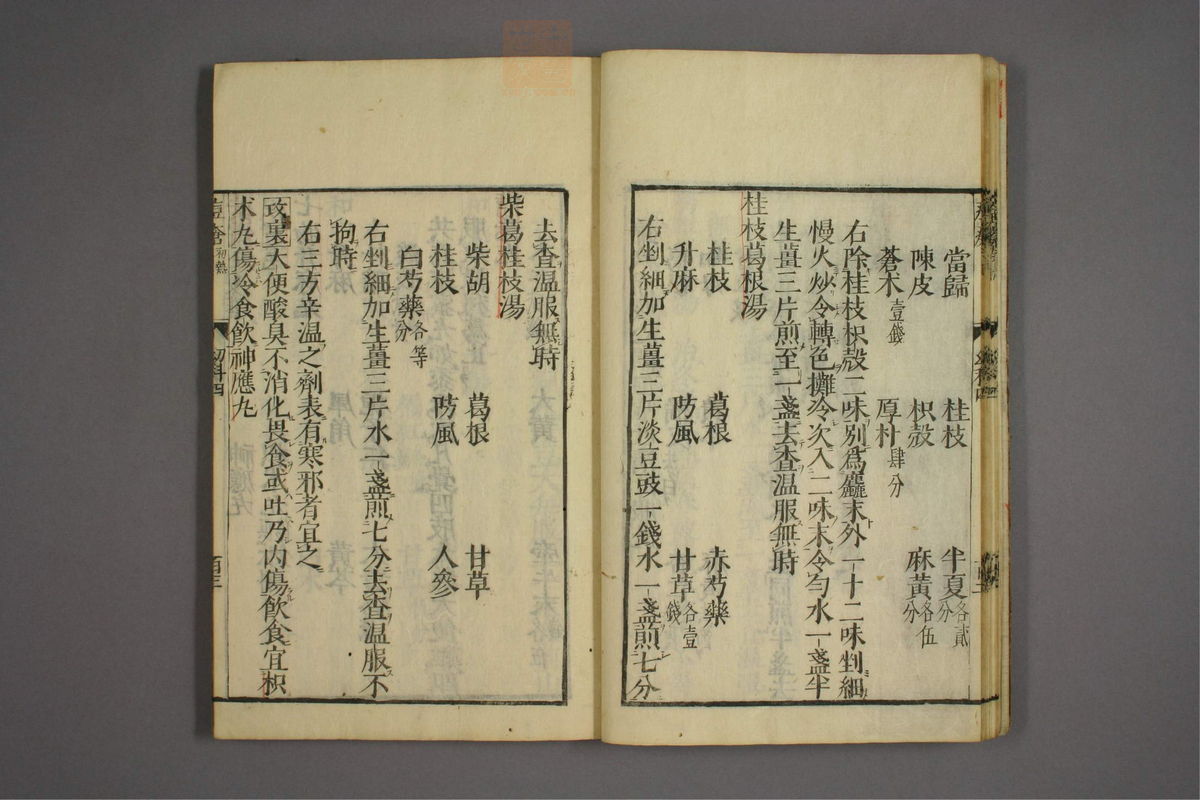 當歸 桂枝 半夏各貳分
陳皮 枳殼 麻黃各伍分
蒼朮壹錢 厚朴肆分
右除桂枝枳殼二味別爲麤末外一十二味剉細
慢火炒令轉色攤冷次入二味末令勻水一盞半
生薑三片煎至一盞去査溫服無時
桂枝葛根湯
桂枝 葛根 赤芍藥
升麻 防風 甘草各壹錢
右剉細加生薑三片淡豆豉一錢水一盞煎七分
去査溫服無時
柴葛桂枝湯
柴胡 葛根 甘草
桂枝 防風 人參
白芍藥各等分
右剉細加生薑三片水一盞煎七分去査溫服不
拘時
右三方辛溫之劑表有寒邪者宜之
攻裏大便酸臭不消化畏食或吐乃內傷飮食宜枳
朮丸傷冷食飮神應丸